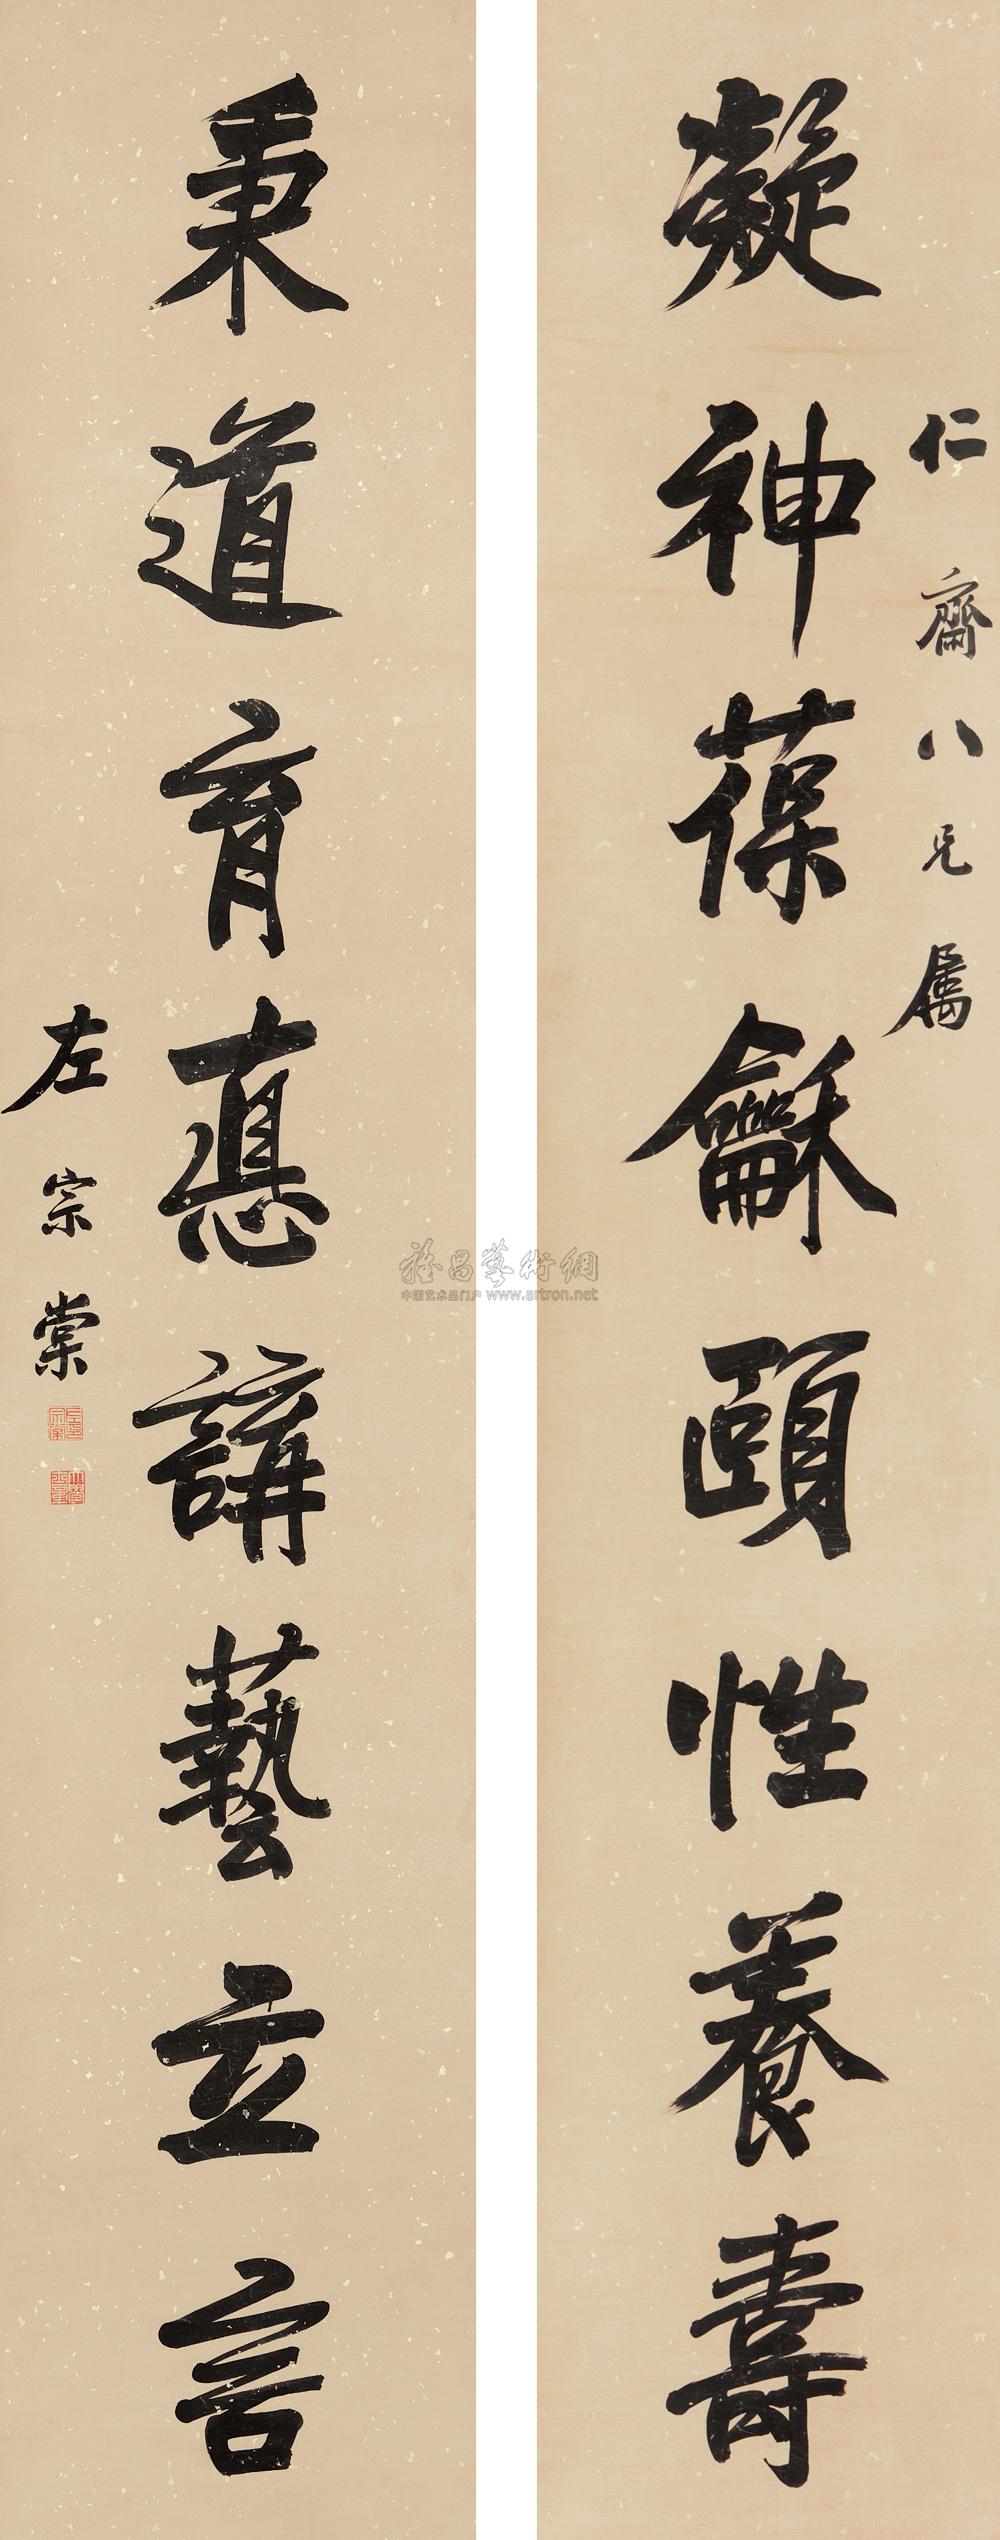 仁齋八兄属
凝神葆龢頤性養壽
秉道育悳講藝立言
左宗棠
雅昌藝術網
中国艺术品门户 www.artron.net